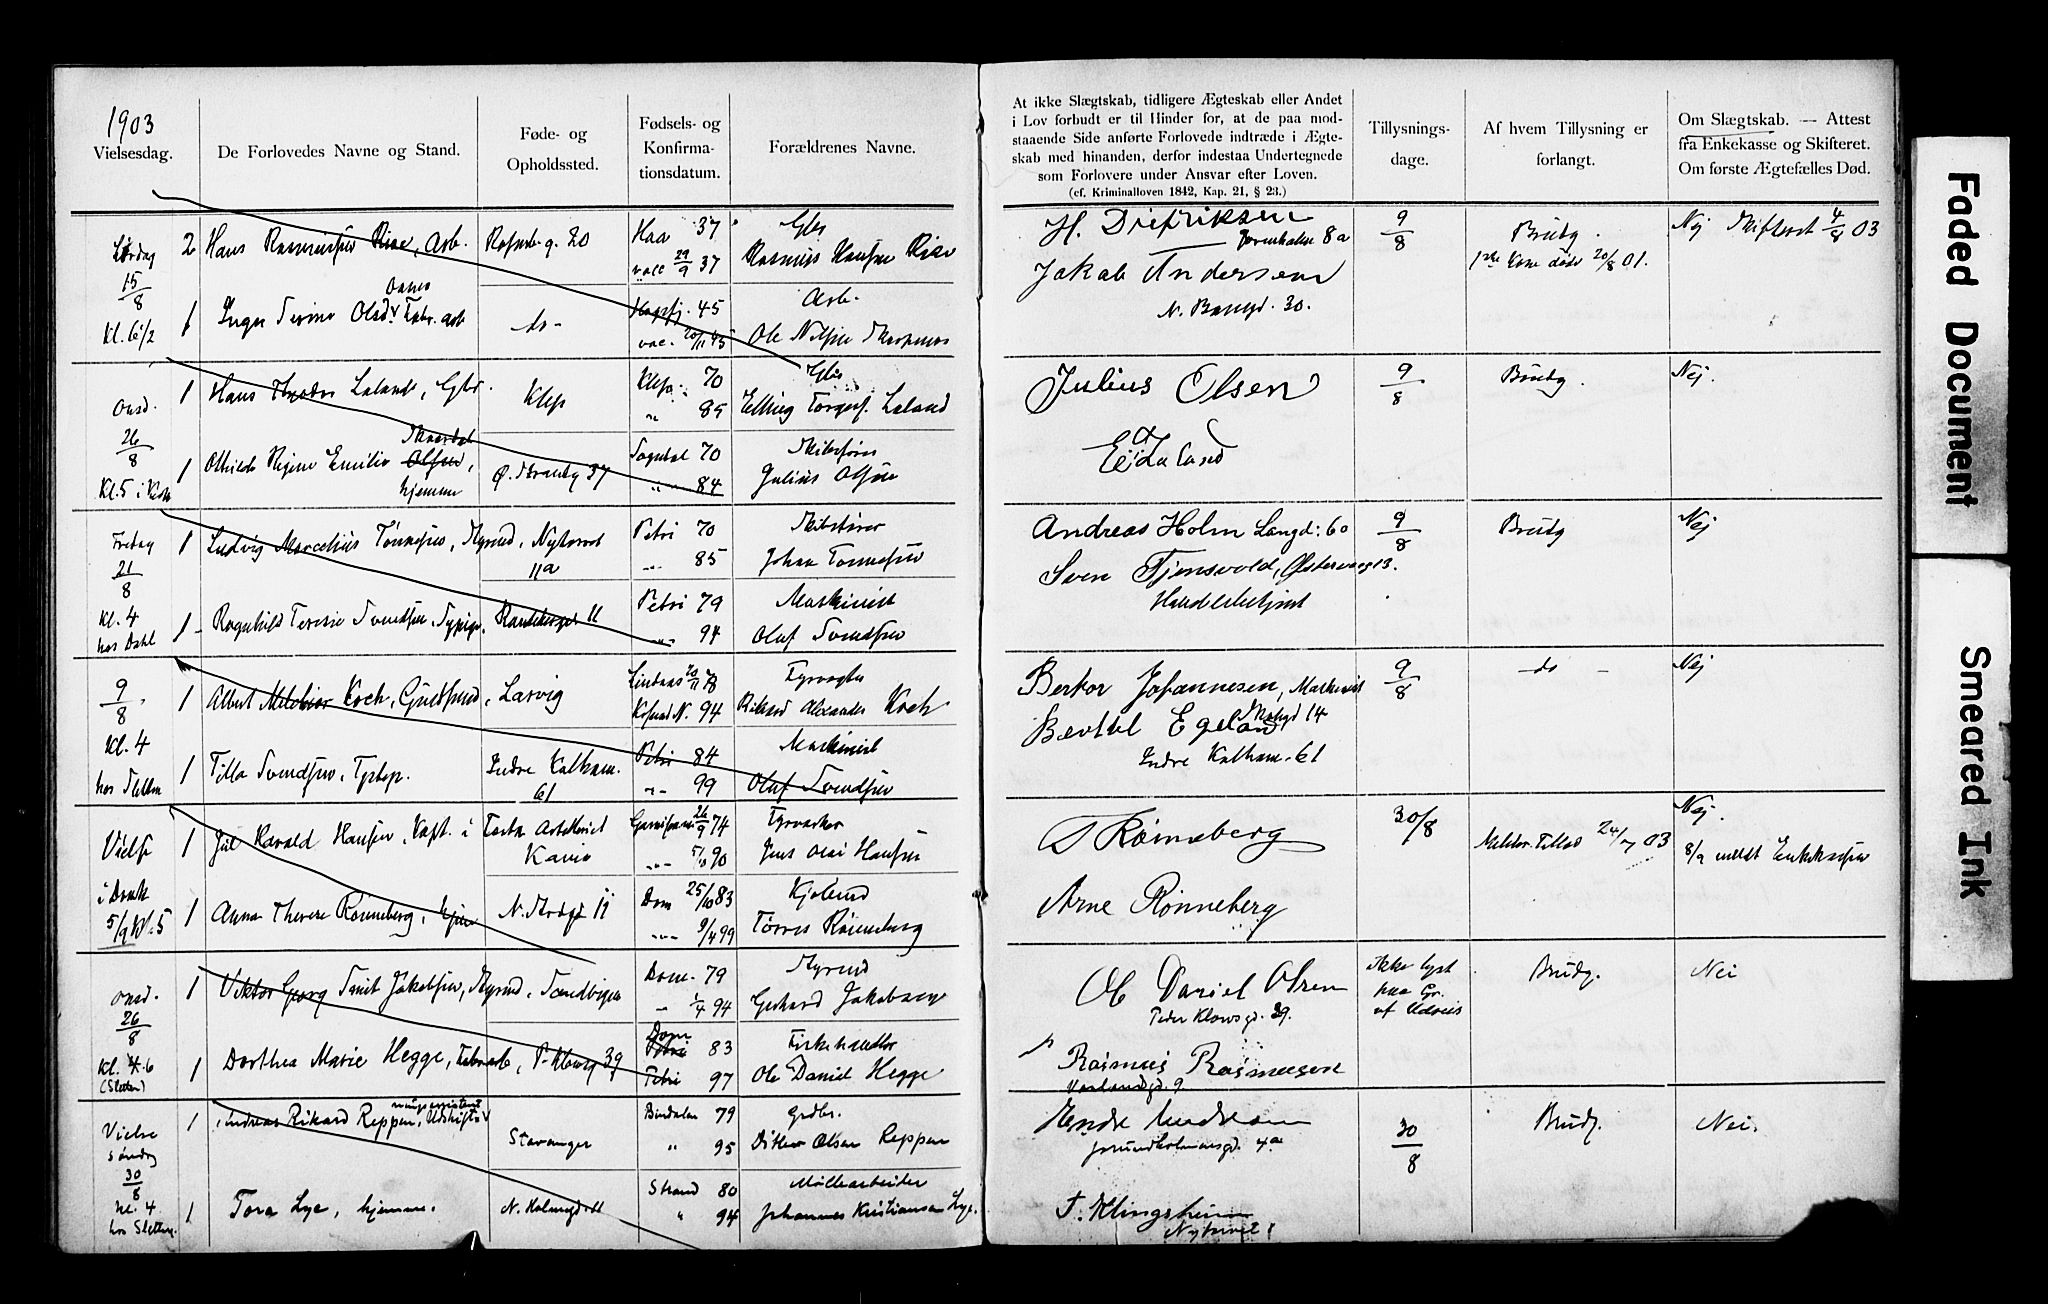 1903
Vielsesdag.
De Forlovedes Navne og Stand.
Føde- og
Opholdssted.
Fødsels- og
Konfirma-
tionsdatum.
Forældrenes Navne.
Lørdag
15/8
Kl. 6 1/2
2 Hans Rasmussen Riise, Arb.
20
Haa 37
vacc 29/9 37
Gbr
Rasmus Hansen Riise
1 Inger Serine Olsd. Fabr. arb
do -
45
vac. 20/11 45
Arb.
Ole Nilsen
Onsd.
26/8
Kl. 5 i Kirk
1 Hans Theodor Laland, Gbr.
Klep
Klep 70
" 85
Gbr
Elling Torgers. Laland
1 Othilde Regine Emilie Olsen,
hjemme
Ø. Strandg 37
Sogndal 70
" 84
Skibsfører
Julius Olsen
Fredag
21/8
Kl. 4
hos Dahl
1 Ludvig Marcelius Tønnesen, Styrmd, Nytorvet
11a
Petri 70
" 85
Skibsfører
Johan Tønnesen
1 Ragnhild Teresie Svendsen, Sypige,
11
Petri 79
" 94
Maskinist
Oluf Svendsen
9/8
Kl. 4
hos Sletten
1 Albert Melchior Koch, Gjørtler, Larvig
20/11 78
94
Fyrvogter
Rikard Alexander Koch
1 Tilla Svendsen,
Indre Kalham.
61
Petri 84
" 99
Maskinist
Oluf Svendsen
Vielse
i Domk
5/9 Kl. 5
1 Juel Harald Hansen, Kapt. i
Kario
26/9 74
" 90
Fyrvogter
Jens Olai Hansen
1 Anna Therese Rønneberg, hjm
N. Strdgd 11
Dom 25/10 83
" 9/4 99
Kjøbmd
Tørres Rønneberg
Onsd.
26/8
Kl. 6
(Sletten)
1 Viktor Georg Smit Jakobsen, Styrmd,
Dom. 79
" 1/4 94
Styrmd
Gerhard Jakobsen
1 Dorthea Marie Hegge, Fabrarb, P. Klowsg 39
Dom
Petri 83
Petri 97
Fiskehandler
Ole Daniel Hegge
Vielse
søndag
30/8
kl. 4
hos Sletten
1 Andreas Rikard Reppen, Udskiftnv
ningsassistent
Stavanger
Bindalen 79
" 95
Grdbr.
Ditlev Olsen Reppen
1 Tora Lye, hjemme.
N. Holmegd. 11
Strand 80
" 94
Møllearbeider
Johannes Kristiansen Lye.
At ikke Slægtskab, tidligere Ægteskab eller Andet
i Lov forbudt er til Hinder for, at de paa mod-
staaende Side anførte Forlovede indtræde i Ægte-
skab med hinanden, derfor indestaa Undertegnede
som Forlovere under Ansvar efter Loven.
(cf. Kriminalloven 1842, Kap. 21, § 23.)
Tillysnings-
dage.
Af hvem Tillysning er
forlangt.
Om Slægtskab. — Attest
fra Enkekasse og Skifteret.
Om første Ægtefælles Død.
H. Diedriksen
8a
9/8
Brudg.
Nej Skifteret 4/8 03
Jakob Andersen
1ste Kone død 20/8 01.
N. Bangd. 30.
Julius Olsen
9/8
Brudg.
Nej.
E. Laland
Andreas Holm Langd: 60
9/8
Brudg
Nej
Sven Tjensvold, Østervaag 13.
Handelsbetjent
Berkor Johannesen, Maskinist
14
9/8
do -
Nej
Berthel Egeland
Indre Kalham. 61
T Rønneberg
30/8
Meldt. Tillad 24/7 03
Nej.
8/9 meldt Enkekassen
Arne Rønneberg
Ole Daniel Olsen
Peder Klowsgd. 39.
ikke lyst
paa Gr.
af Udreis
Brudg.
Nei
Rasmus Rasmussen
9
Hendr Andersen
4a
30/8
Brudg.
Nei.
T. Klingsheim
Nytorvet 1
Faded Document
Smeared Ink